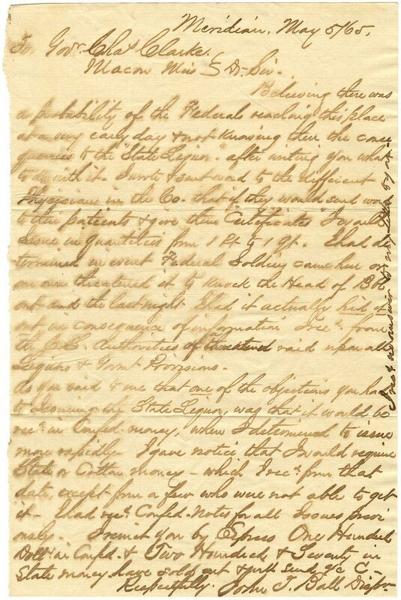 Meridian, May 5/65.
To Govr. Chas Clarke
Macon Miss Dr Sir.
Believing there was
a probability of the Federals reaching this place
at a very early day & not knowing then the conse
quences to the "State Liquor" after writing you what
to do with it I wrote & sent word to the different
Physicians in the Co. that if they would send word
to their patients & give them Certificates I would
issue in quantities from 1 Pt to 1 qt. I had de
termined in event Federal Soldiers came here or
any one threatened it to Knock the Head of Bbl
out and the last night I had it actually hid
out in consequence of information Recd. from
the C.S. Authorities of threatened raid upon all
Liquors & Govmt Provisions.
As you said to me that one of the objections you had
to Issuing the State Liquor, was that it would be
recd. in Confed. money, when I determined to issue
more rapidly I gave notice that I would require
State or Cotton money – which I recd. from that
date, except from a few who were not able to get
it – I had recd. Confd. Notes for all Issues previ
ously. I remit you by Express One Hundred
Dolls in Confd. & Two Hundred & Seventy in
State money have sold out & will send a/c
Respectfully. John T. Ball Dispr.